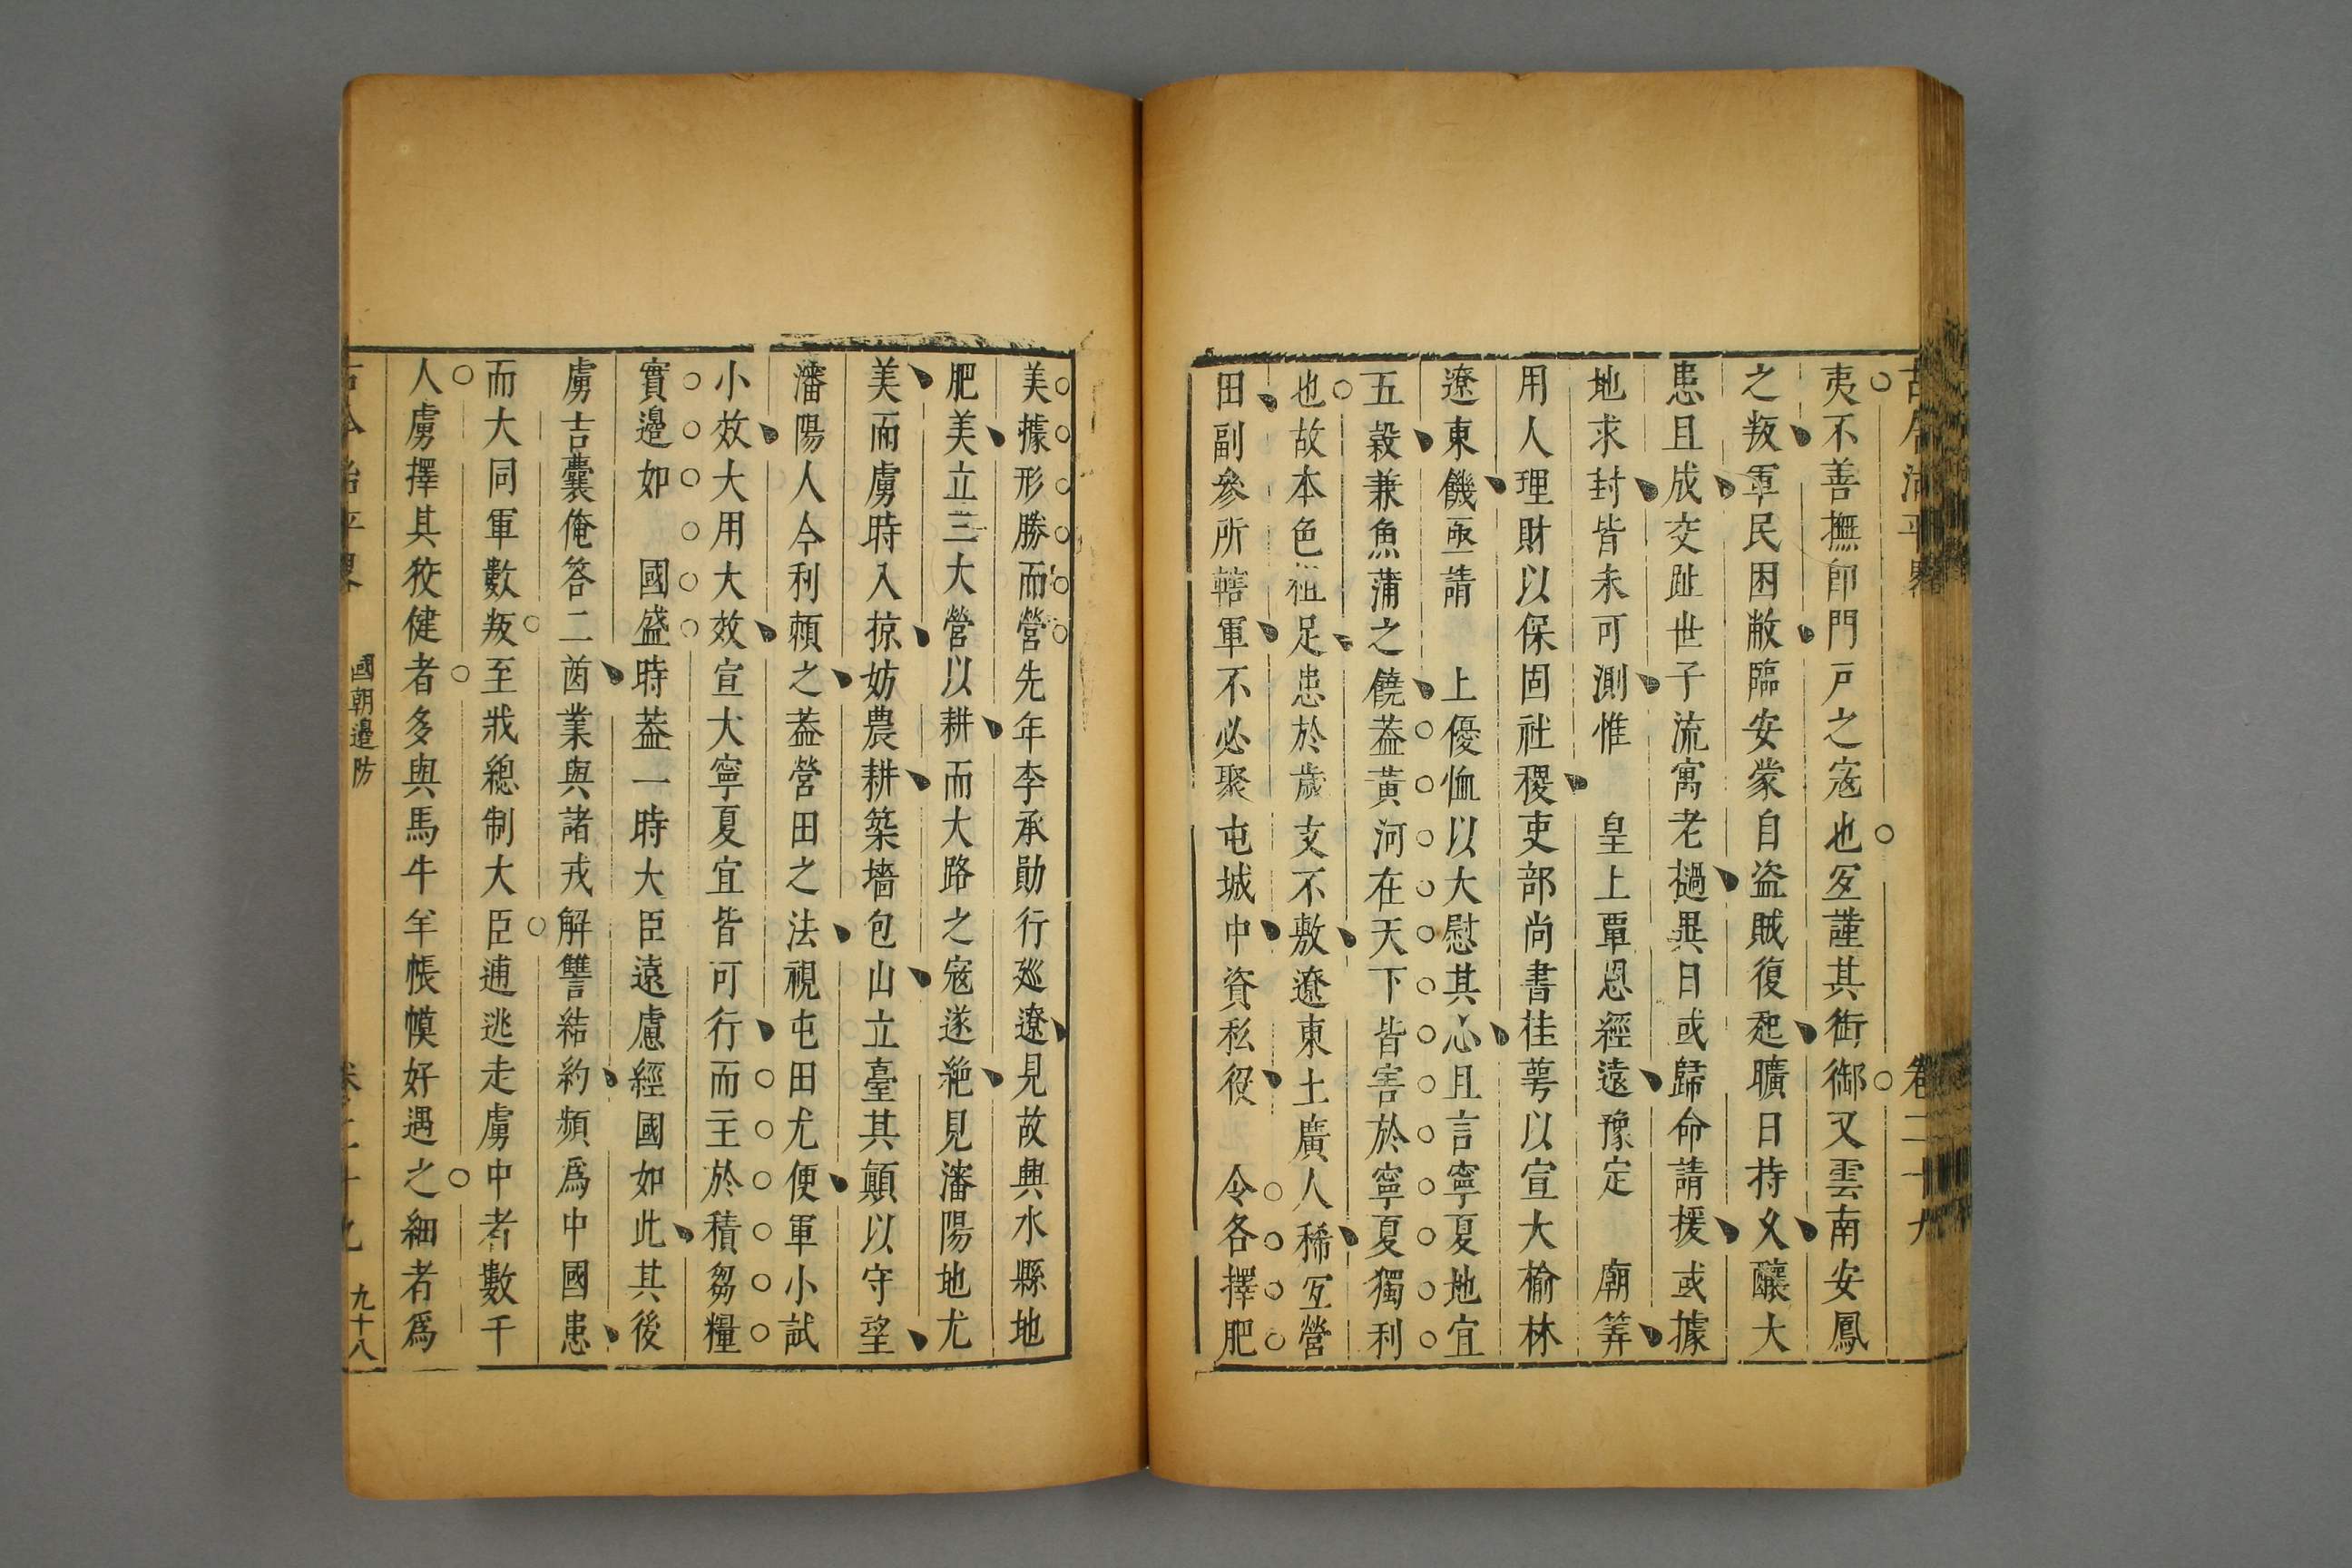 古今治平畧
卷二十九
夷不善撫卽門戸之寇也宐謹其銜御又雲南安鳳
之叛軍民困敝臨安蒙自盗賊復起曠日持久釀大
患且成交趾世子流寓老撾異日或歸命請援或據
地求封皆未可測惟 皇上覃恩經遠豫定 廟筭
用人理財以保固社稷吏部尚書桂萼以宣大榆林
遼東饑亟請 上優恤以大慰其心且言寧夏地宜
五穀兼魚蒲之饒葢黃河在天下皆害於寧夏獨利
也故本色租足患於歲支不敷遼東土廣人稀宐營
田副參所轄軍不必聚屯城中資私役 令各擇肥
美據形勝而營先年李承勛行廵遼見故興水縣地
肥美立三大營以耕而大路之寇遂絶見瀋陽地尤
美而虜時入掠妨農耕築墻包山立臺其顚以守望
瀋陽人今利賴之葢營田之法視屯田尤便軍小試
小效大用大效宣大寧夏宜皆可行而主於積芻糧
實邊如 國盛時葢一時大臣遠慮經國如此其後
虜吉囊俺答二酋業與諸戎解讐結約頻爲中國患
而大同軍數叛至戕總制大臣逋逃走虜中者數千
人虜擇其狡健者多與馬牛羊帳幙好遇之細者爲
古今治平畧
國朝邊防
卷二十九
九十八